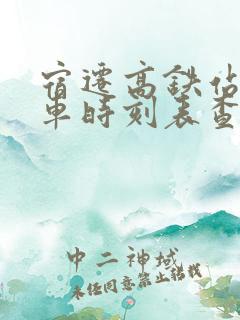 宿迁高铁站
车时刻表查
中二神域
未经同意禁止转载